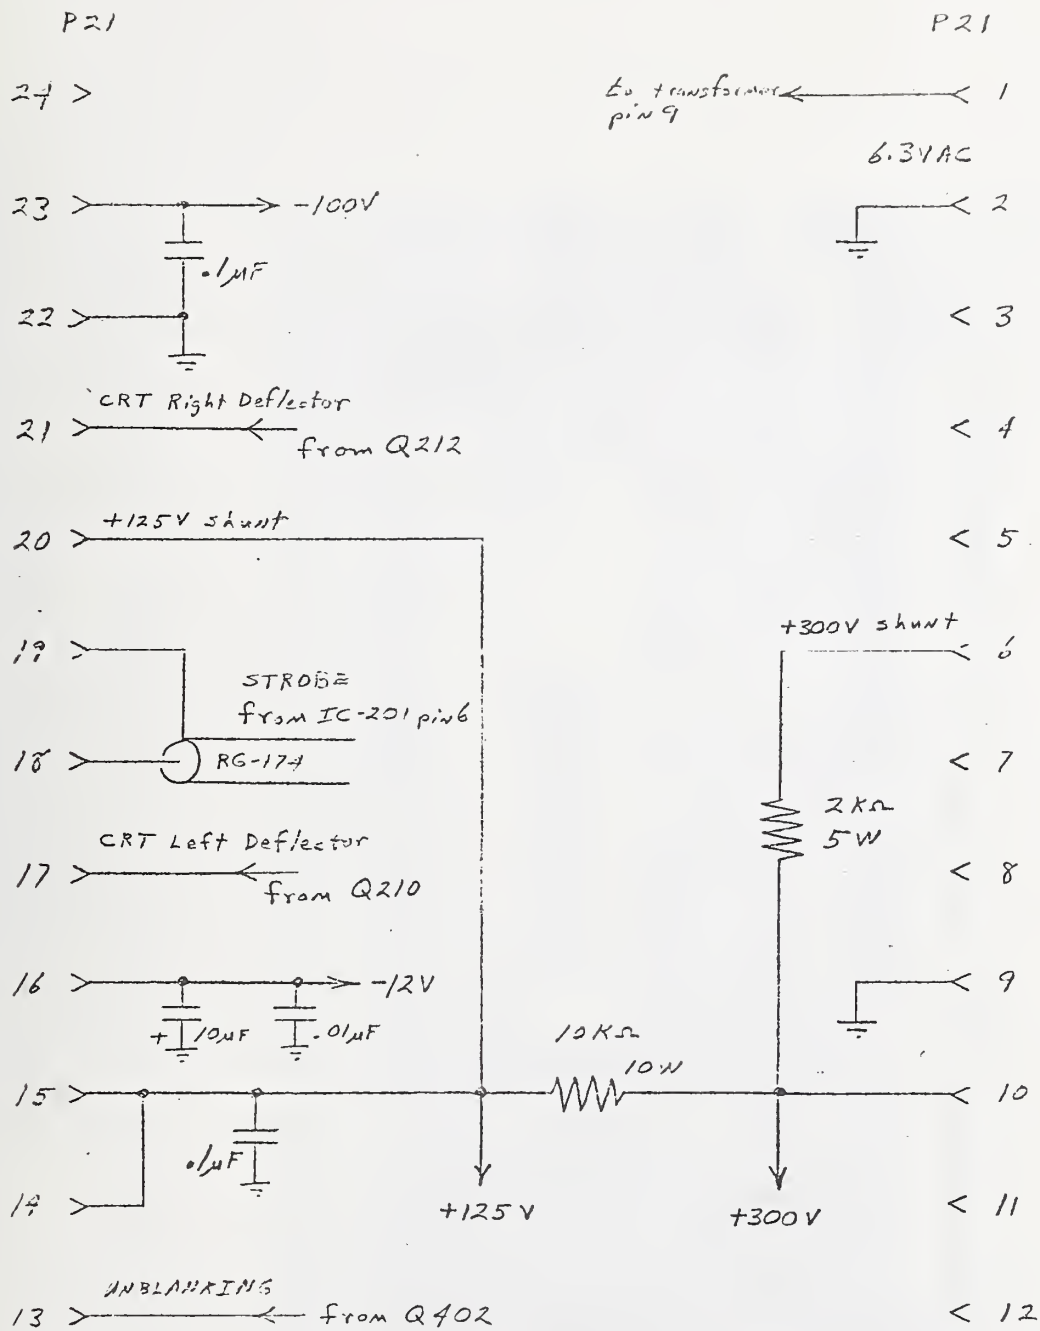 P21
P21
24
to transformer
pin 9
1
6.3VAC
23
-100V
2
.1μF
22
3
CRT Right Deflector
21
from Q212
4
+125V shunt
20
5
+300V shunt
19
6
STROBE
from IC-201 pin6
18
RG-174
7
2KΩ
5W
CRT Left Deflector
17
from Q210
8
16
-12V
9
+ 10μF
.01μF
10KΩ
10W
15
10
.1μF
14
+125V
+300V
11
UNBLANKING
13
from Q402
12